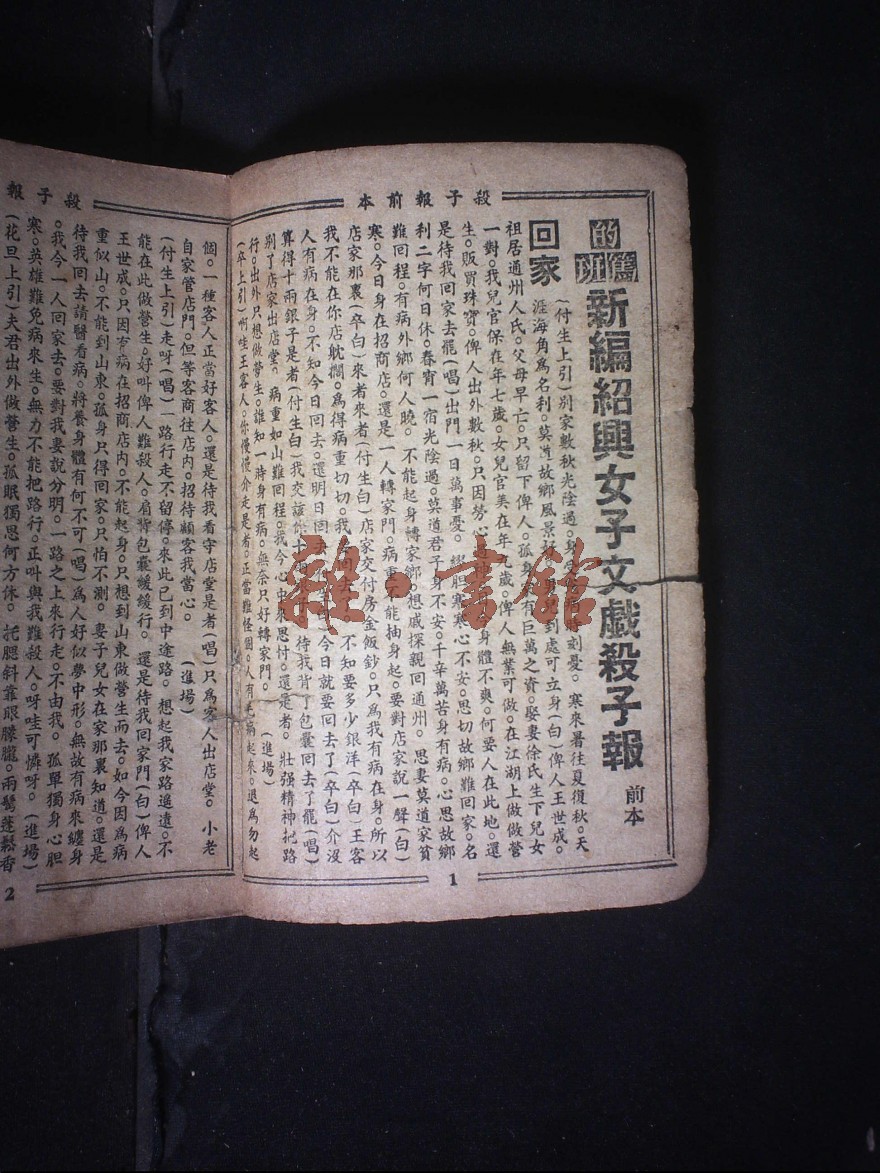 殺子報前本
的篤班
新編紹興女子文戲殺子報 前本
回家
(付生上引)別家數秋光陰過。身 刻憂。寒來暑往夏復秋。天
涯海角爲名利。莫道故鄉風景好。 兒到處可立身(白)俾人王世成。
祖居通州人氏。父母早亡。只留下俾人。孤身 有巨萬之資。娶妻徐氏生下兒女
一對。我兒官保在年七歲。女兒官美在年九歲。俾人無業可做。在江湖上做做營
生。販買珠寶。俾人出外數秋。只因勞心過 身體不爽。何要人在此地。還
是待我回家去罷(唱)出門一日萬事憂。 膽寒寒心不安。思切故鄉難回家。名
利二字何日休。春宵一宿光陰過。莫道君子身不安。千辛萬苦身有病。心思故鄉
難回程。有病外鄉何人曉。不能起身轉家鄉。想戚探親回通州。思妻莫道家貧
寒。今日身在招商店。還是一人轉家門。病重不能抽身起。要對店家說一聲(白)
店家那裏(卒白)來者來者(付生白)店家交付房金飯鈔。只爲我有病在身。所以
我不能在你店躭擱。爲得病重切切。我 回去 不知要多少銀洋(卒白)王客
人有病在身。不知今日回去。還明日回去 今日就要回去了(卒白)介沒
算得十兩銀子是者(付生白)我交該你十兩 待我背了包囊回去了罷(唱)
別了店家出店堂。病重如山難回程。我今心中來思忖。還是者。壯强精神把路
行。出外只想做營生。誰知一時身有病。無奈只好轉家門。 (進場)
(卒上引)啊哇王客人。你慢慢介走是者。正當難怪個。人有毛病起來。退爲勿起
1
殺子報
個。一種客人正當好客人。還是待我看守店堂是者(唱)只爲客人出店堂。小老
自家管店門。但等客商往店內。招待顧客我當心。 (進場)
(付生上引)走呀(唱)一路行走不留停。來此已到中途路。想起我家路遙遠。不
能在此做營生。好叫俾人難殺人。肩背包囊緩緩行。還是待我回家門(白)俾人
王世成。只因有病在招商店內。不能起身。只想到山東做營生而去。如今因爲病
重似山。不能到山東。孤身只得回家。只怕不測。妻子兒女在家那裏知道。還是
待我回去請醫看病。將養身體有何不可(唱)爲人好似夢中形。無故有病來纏身
。我今一人回家去。要對我妻說分明。一路之上來行走。不由我。孤單獨身心胆
寒。英雄難免病來生。無力不能把路行。正叫與我難殺人。呀哇可憐呀。(進場)
(花旦上引)夫君出外做營生。孤眠獨思何方休。托腮斜靠眼朦朧。兩鬢蓬鬆香
2
雜·書館